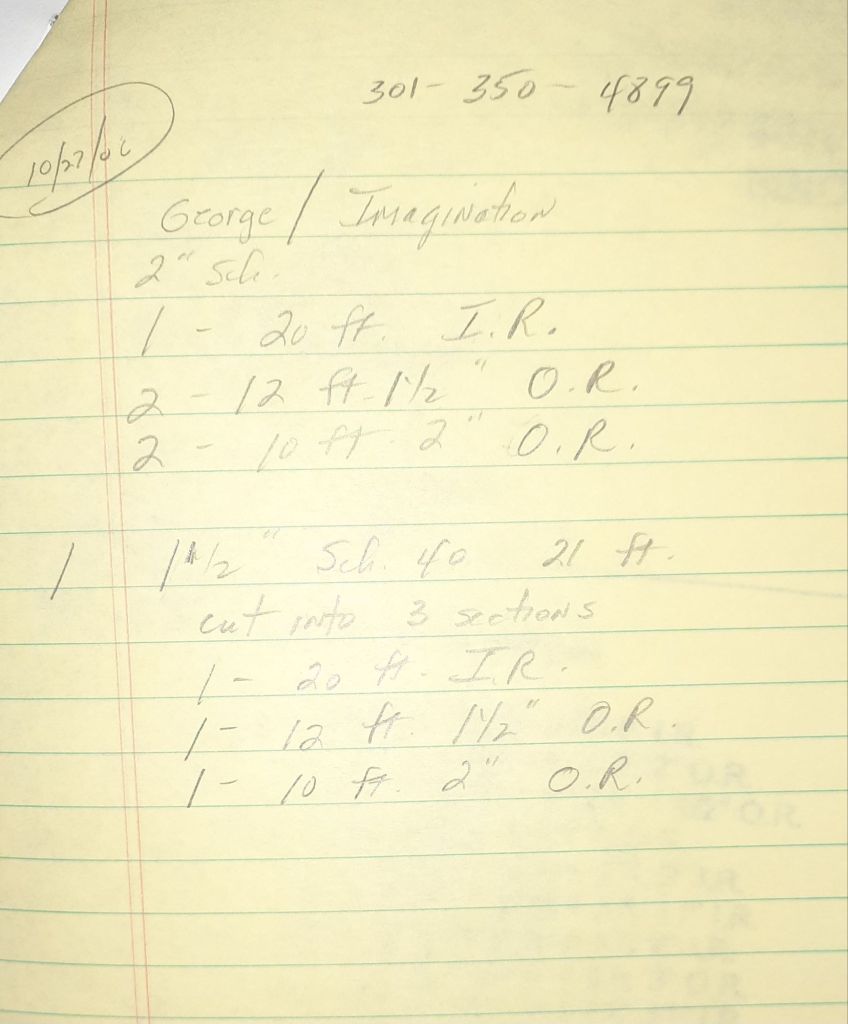 301-350-4899
10/27/06
George / Imagination
2" Sch.
1 - 20 ft. I.R.
2 - 12 ft. 1 1/2" O.R.
2 - 10 ft. 2" O.R.
1 1 1/2" Sch. 40 21 ft.
cut into 3 sections
1 - 20 ft. I.R.
1 - 12 ft. 1 1/2" O.R.
1 - 10 ft. 2" O.R.